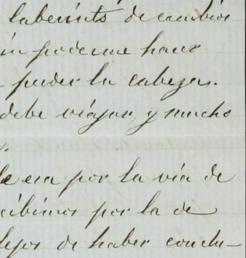 laberinto de cambios
sin poderme hacer
perder la cabeza.
debe viajar, y mucho
le era por la via de
cibimos por la de
lejos de haber conclu-